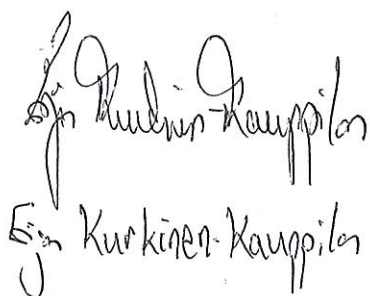 Eija Kurkinen-Kauppila
Eija Kurkinen-Kauppila